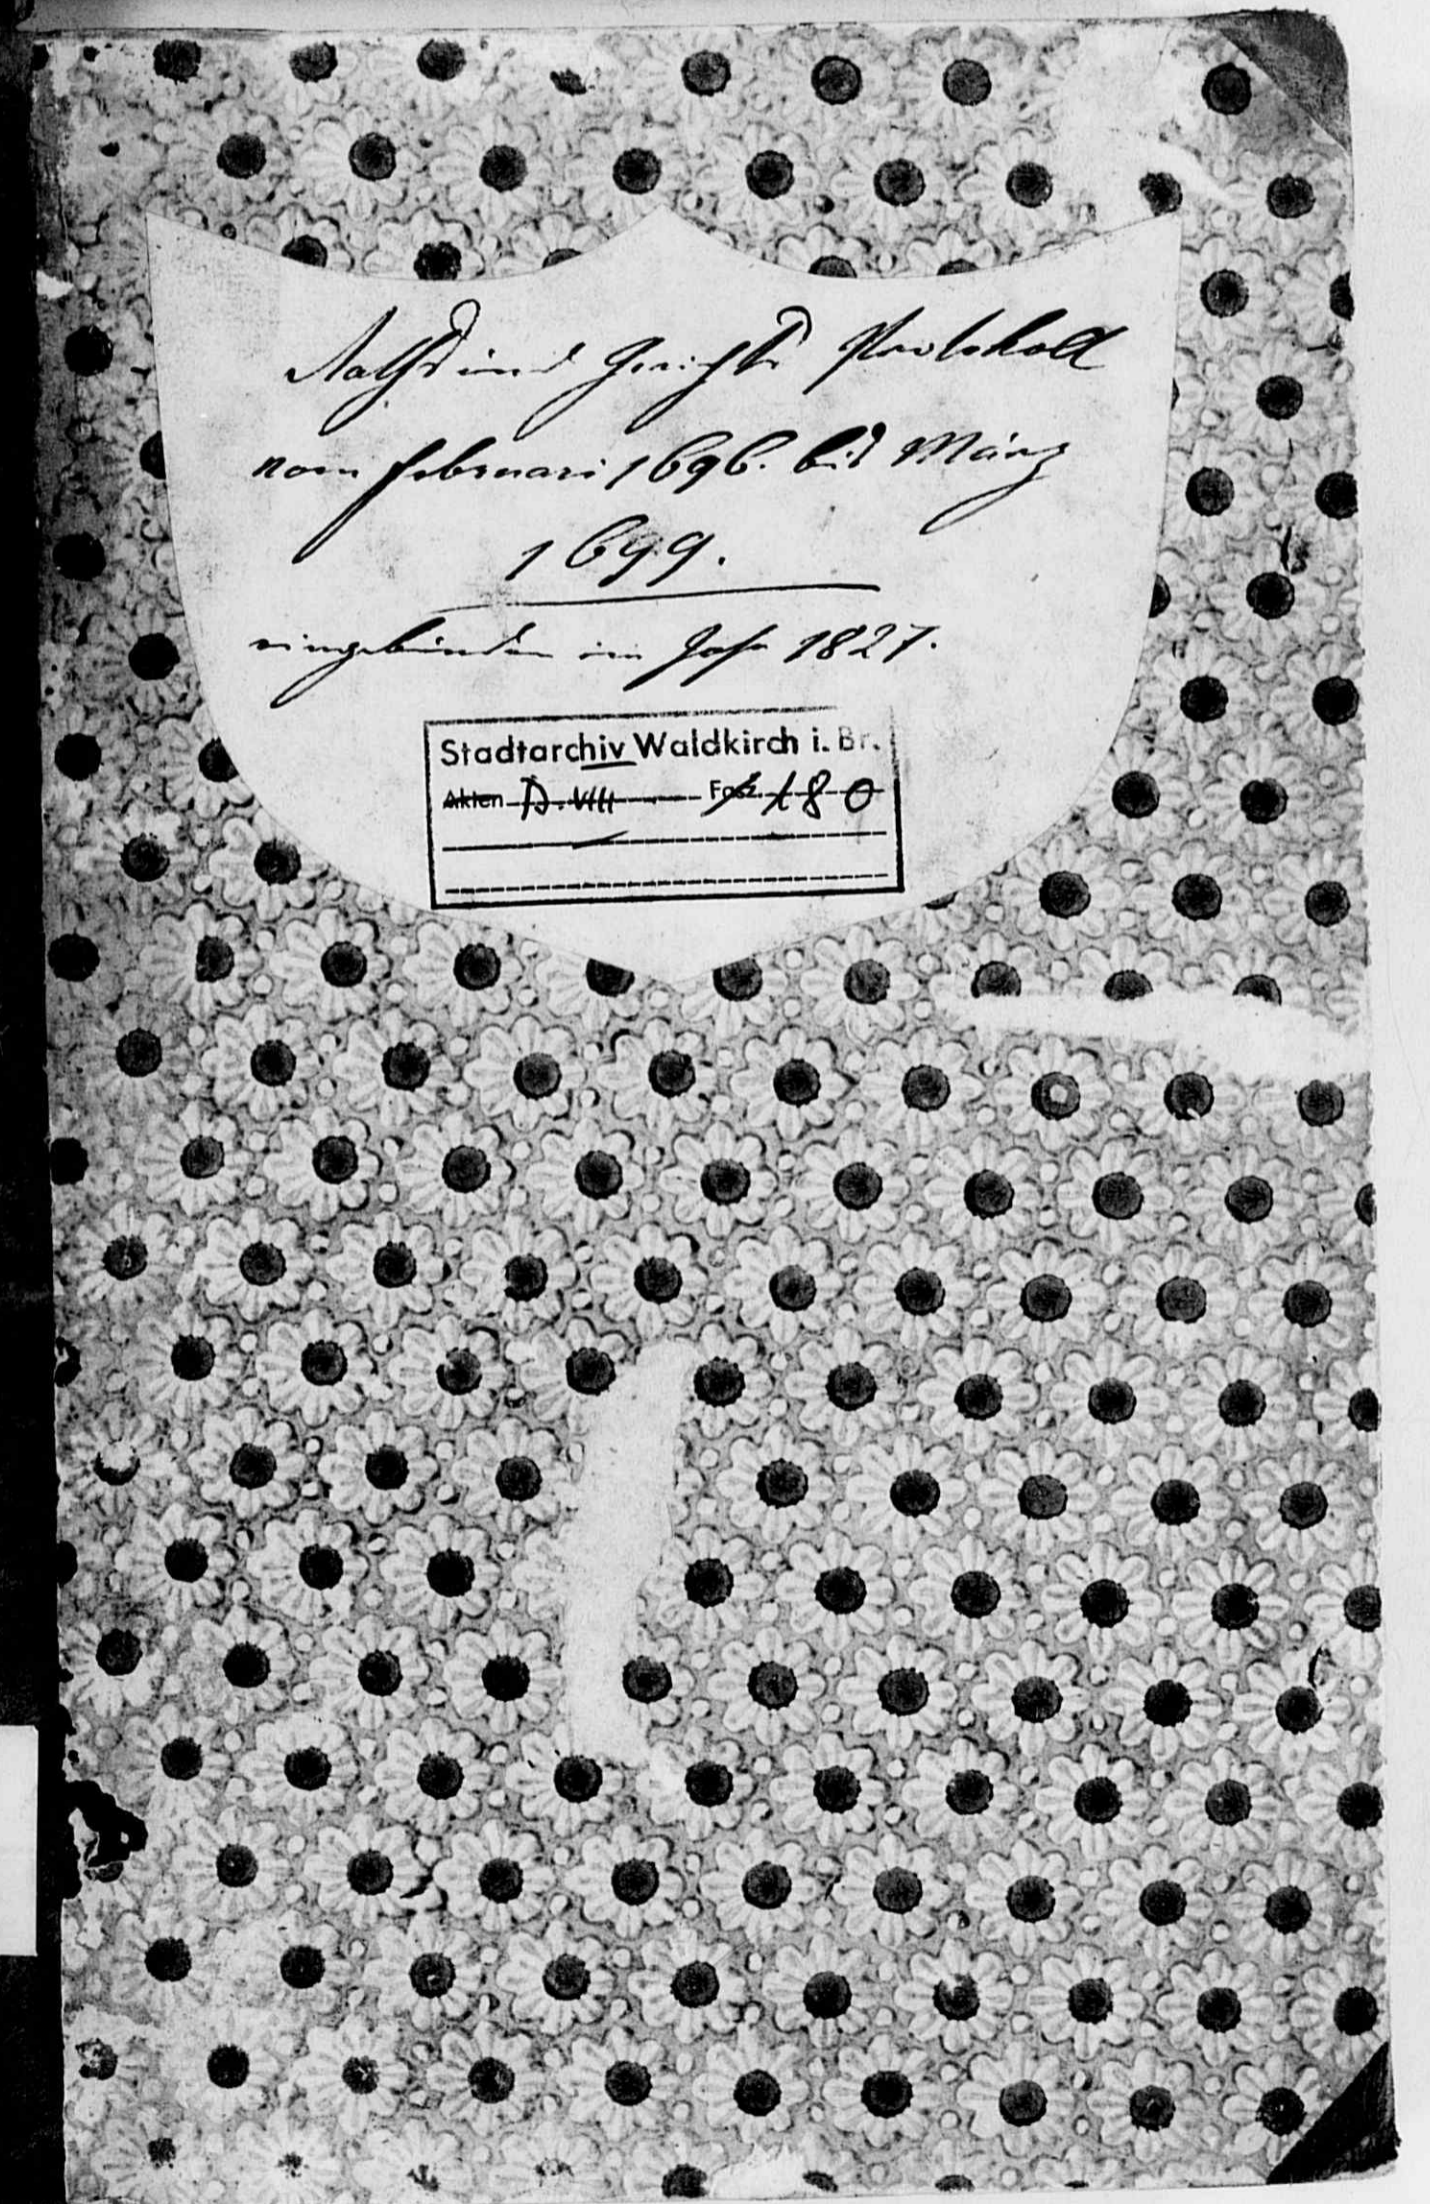 Raths und Gerichts Protokoll
vom Februari 1696. bis März
1699.
eingebunden im Jahr 1827.
Stadtarchiv Waldkirch i. Br.
Akten D. VIII Fasz. 180